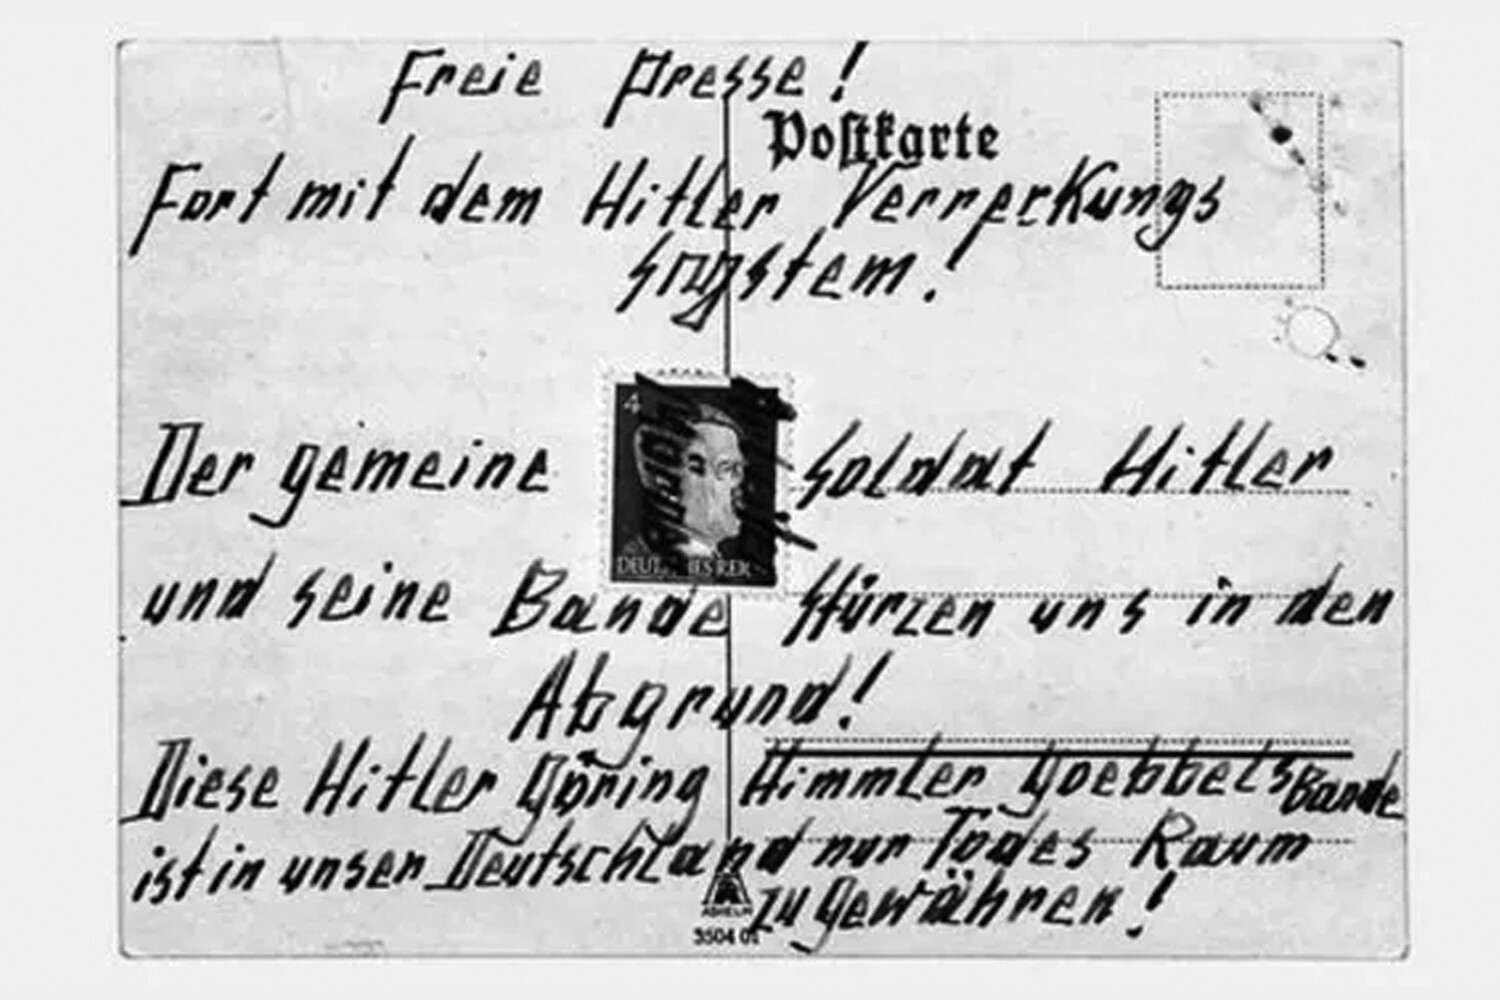 Freie Presse!
Postkarte
Fort mit dem Hitler Verrerkungs
System!
4
DEUT ES REI
Der gemeine Soldat Hitler
und seine Bande Stürzen uns in den
Abgrund!
Diese Hitler Göring Himmler Goebbels Bande
ist in unser Deutschland nur Todes Raum
zu gewähren!
3504 01